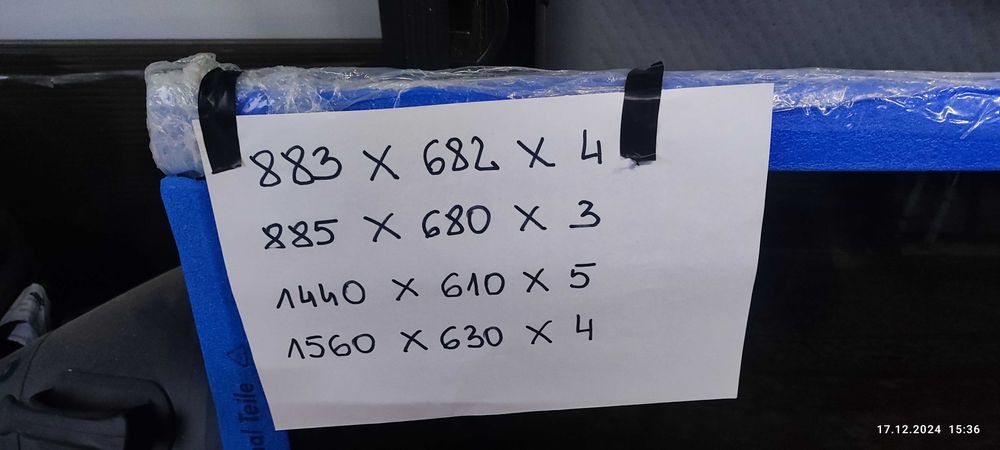 883 X 682 X 4
885 X 680 X 3
1440 X 610 X 5
1560 X 630 X 4
Teile
17.12.2024 15:36